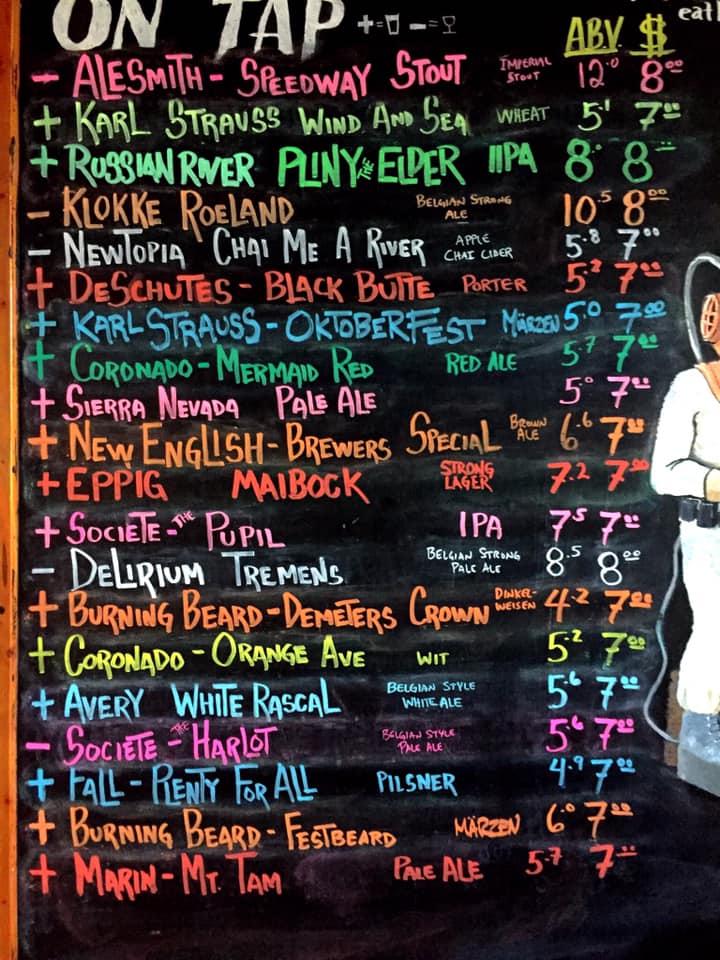 eat
ON TAP + = - =
ABV $
- ALESMITH - SPEEDWAY STOUT IMPERIAL STOUT 12.0 8.00
+ KARL STRAUSS WIND AND SEA WHEAT 5.1 7.00
+ RUSSIAN RIVER PLINY THE ELDER IIPA 8. 8
- KLOKKE ROELAND BELGIAN STRONG ALE 10.5 8.00
- NEWTOPIA CHAI ME A RIVER APPLE CHAI CIDER 5.8 7.00
+ DESCHUTES - BLACK BUTTE PORTER 5.2 7.00
+ KARL STRAUSS - OKTOBERFEST MÄRZEN 5.0 7.00
+ CORONADO - MERMAID RED RED ALE 5.7 7.00
+ SIERRA NEVADA PALE ALE 5.0 7.00
+ NEW ENGLISH - BREWERS SPECIAL BROWN ALE 6.6 7.00
+ EPPIG MAIBOCK STRONG LAGER 7.2 7.00
+ SOCIETE - THE PUPIL IPA 7.5 7.00
- DELIRIUM TREMENS BELGIAN STRONG PALE ALE 8.5 8.00
+ BURNING BEARD - DEMETERS CROWN DINKEL-WEISEN 4.2 7.00
+ CORONADO - ORANGE AVE WIT 5.2 7.00
+ AVERY WHITE RASCAL BELGIAN STYLE WHITE ALE 5.6 7.00
- SOCIETE - THE HARLOT BELGIAN STYLE PALE ALE 5.6 7.00
+ FALL - PLENTY FOR ALL PILSNER 4.9 7.00
+ BURNING BEARD - FESTBEARD MÄRZEN 6.0 7.00
+ MARIN - MT. TAM PALE ALE 5.7 7.00